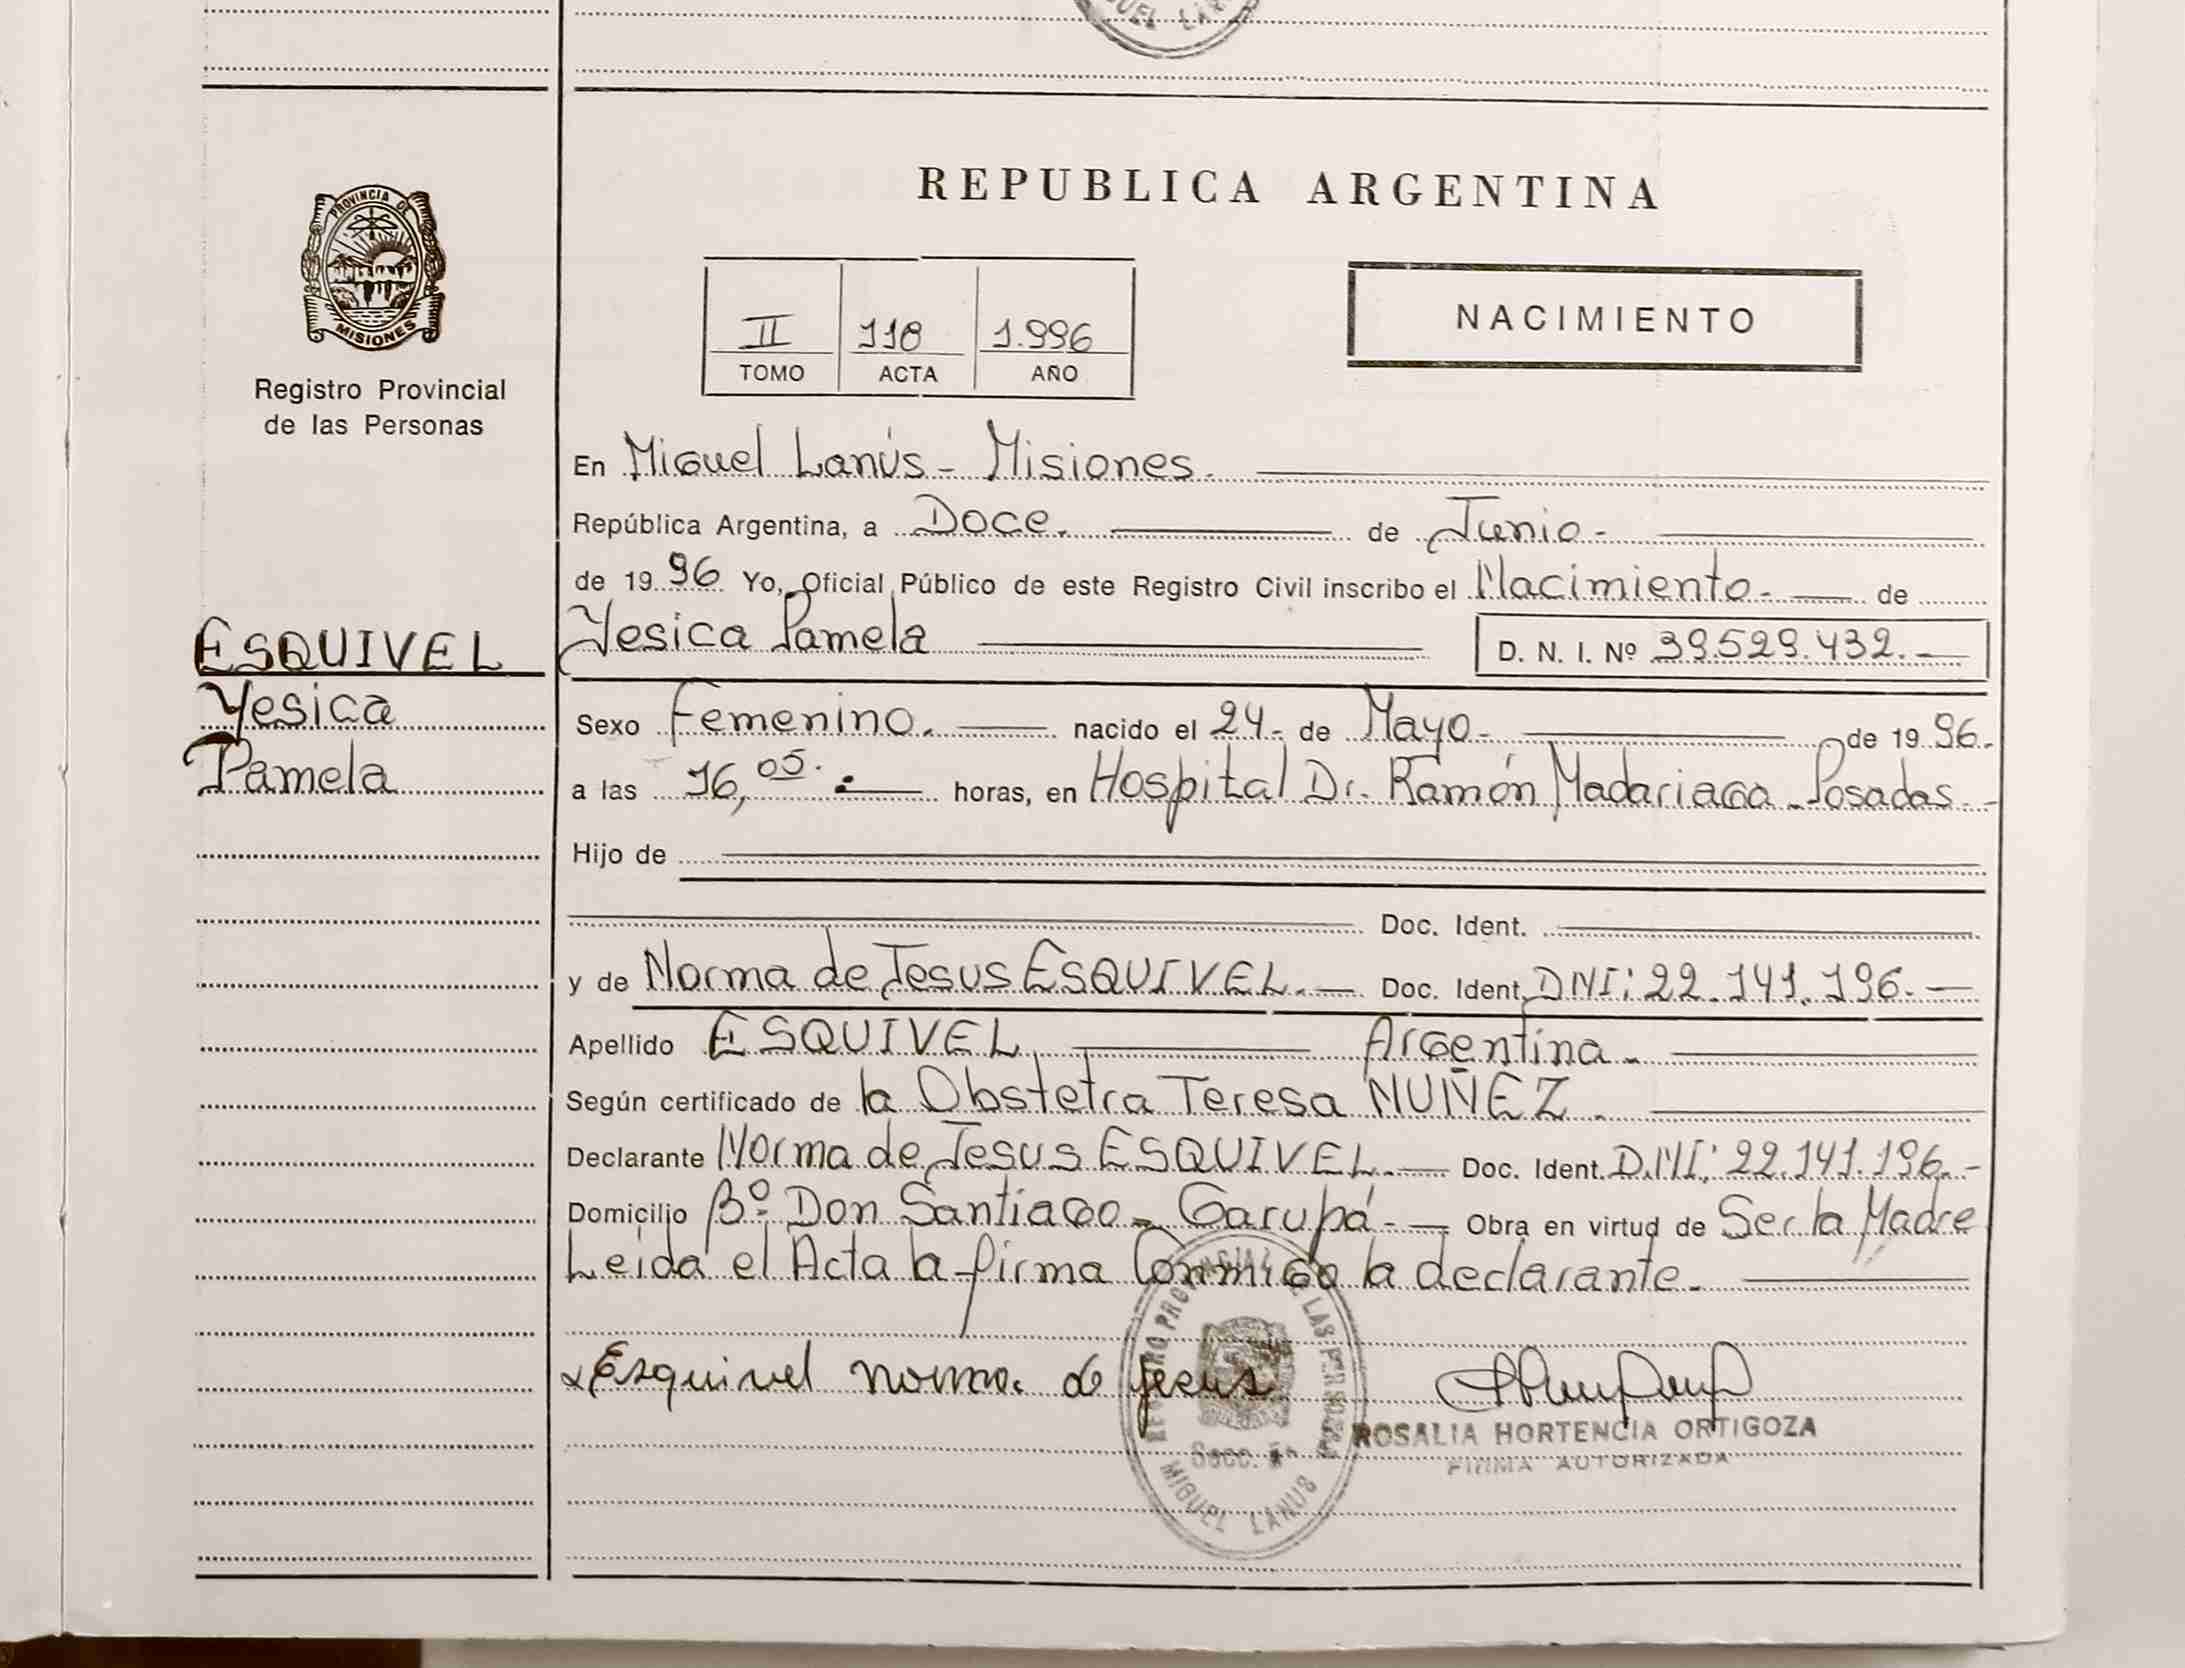 MIGUEL LANUS
REPUBLICA ARGENTINA
PROVINCIA DE
MISIONES
Registro Provincial
de las Personas
II 118 1.996
TOMO ACTA AÑO
NACIMIENTO
En Miguel Lanús - Misiones.
República Argentina, a Doce. de Junio-
de 1996 Yo, Oficial Público de este Registro Civil inscribo el Nacimiento- de
Yesica Pamela D. N. I. Nº 39.529.432.-
ESQUIVEL
Yesica
Pamela
Sexo Femenino. nacido el 24- de Mayo- de 1996.-
a las 16,05. horas, en Hospital Dr. Ramón Madariaga - Posadas.-
Hijo de
Doc. Ident.
y de Norma de Jesus ESQUIVEL.- Doc. Ident. DNI: 22.141.196.-
Apellido ESQUIVEL Argentina-
Según certificado de la Obstetra Teresa NUÑEZ.
Declarante Norma de Jesus ESQUIVEL.- Doc. Ident. D.NI: 22.141.196.-
Domicilio Bº Don Santiago - Garupá- Obra en virtud de Ser la Madre
Leida el Acta la firma Conmigo la declarante.
Esquivel norma de Jesus
REGISTRO PROVINCIAL DE LAS PERSONAS
Secc. 5ª
MIGUEL LANUS
ROSALIA HORTENCIA ORTIGOZA
FIRMA AUTORIZADA